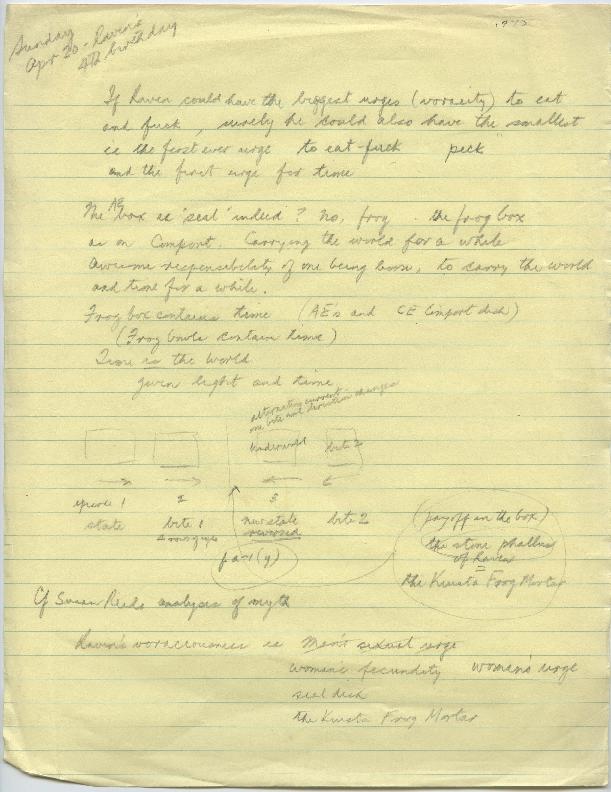 1975
Sunday
Apr 20 - Raven's
4th birthday
If Raven could have the biggest urges (voracity) to eat
and fuck, surely he could also have the "smallest"
ie the first ever urge to eat-fuck peck
and the first urge for time
The AE box is 'seal' indeed? No, frog. the frog box
is on Comport. Carrying the world for a while
awesome responsibility of one being, to carry the world
and time for a while.
Frog box contains time (AE's and CE Comport dish)
(Frog bowls contain time)
Time is the world
given light and time
alternating current
one bite and direction changes
Underworld bite 2
episode 1 2 3
state bite 1 new state bite 2
reversed
f a-1 (y)
(payoff in the box)
the stone phallus
of Raven
=
the Kwista Frog Mortar
Cf Susan Reids analysis of myth
Raven's voraciousness is Men's sexual urge
woman's fecundity woman's urge
seal dish
the Kwista Frog Mortar